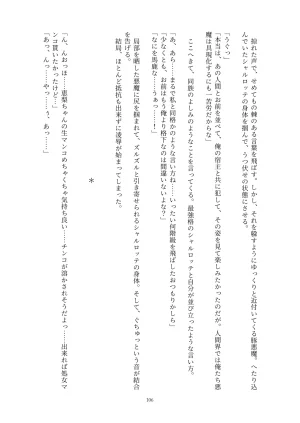 掠れた声で、せめてもの棘のある言葉を飛ばす。しかし、それを躱すようにゆっくりと近付いてくる豚悪魔。へたり込
んでいたシャルロッテの身体を掴んで、うつ伏せの状態にさせる。
「うぐっ」
「本当は、あの人間とお前を並べて、俺の宿主と共に犯して、その姿を見て楽しみたかったのだが。人間界では俺たち悪
魔は具現化するにも一苦労だからな」
ここへきて、同族のよしみのようなことを言う。最強格のシャルロッテと自分が並び立ったような言い方。
「あ、あら……まるで私と同格かのような言い方ね……いったい何階級を飛ばしたおつもりかしら」
「少なくとも、お前はもう俺より格下なのは間違いないよな？」
「なにを馬鹿な……うぁっ」
局部を晒した悪魔に尻を掴まれて、ズルズルと引き寄せられるシャルロッテの身体。そして、ぐちゅっという音が結合
を告げる。
結局、ほとんど抵抗も出来ずに凌辱が始まってしまった。
＊
「ん、んおっほ……恵梨ちゃんの生マンコめちゃくちゃ気持ち良い……チンコが溶かされそうだよっ……出来れば処女マ
ンコ貰いたかったけど……」
「あっ……んっ……やっ……う、あっ……」
106